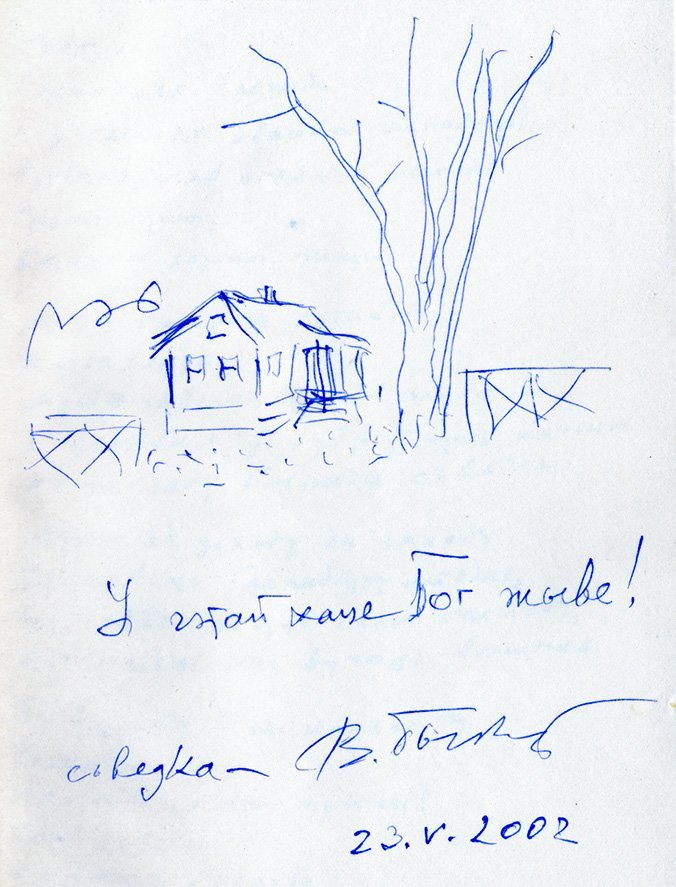 У гэтай хаце Бог жыве!
сьведка — В. Быкаў
23.V.2002